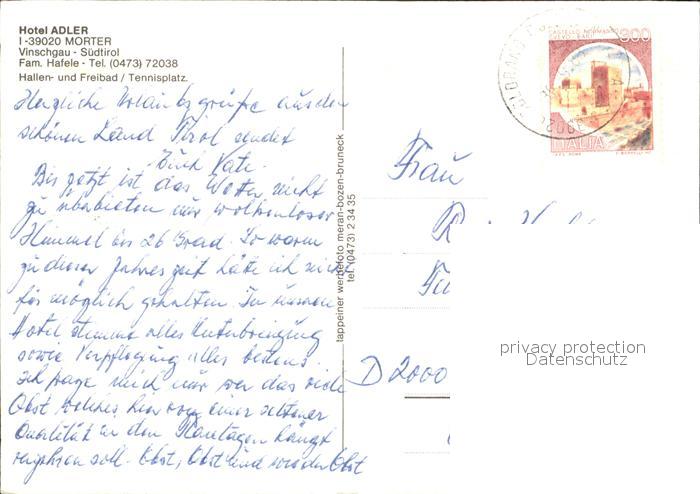 Hotel ADLER
I-39020 MORTER
Vinschgau - Südtirol
Fam. Hafele - Tel. (0473) 72038
Hallen- und Freibad / Tennisplatz.
Herzliche Urlaubsgrüße aus dem
schönen Land Tirol sendet
Euch Kati.
Bis jetzt ist das Wetter nicht
zu überbieten nur wolkenloser
Himmel bis 26 Grad. So warm
zu dieser Jahreszeit hätte ich nicht
für möglich gehalten. In unserem
Hotel stimmt alles Unterbringung
sowie Verpflegung alles bestens.
Ich frage mich nur wer das viele
Obst welches hier von einer seltener
Qualität in den Plantagen hängt
verzehren soll. Obst, Obst und wieder Obst
tappeiner werbefoto meran-bozen-bruneck
tel. (0473) 2 34 35
CASTELLO NORMANNO
SVEVO - BARI
300
ITALIA
Frau
D 2000
privacy protection
Datenschutz